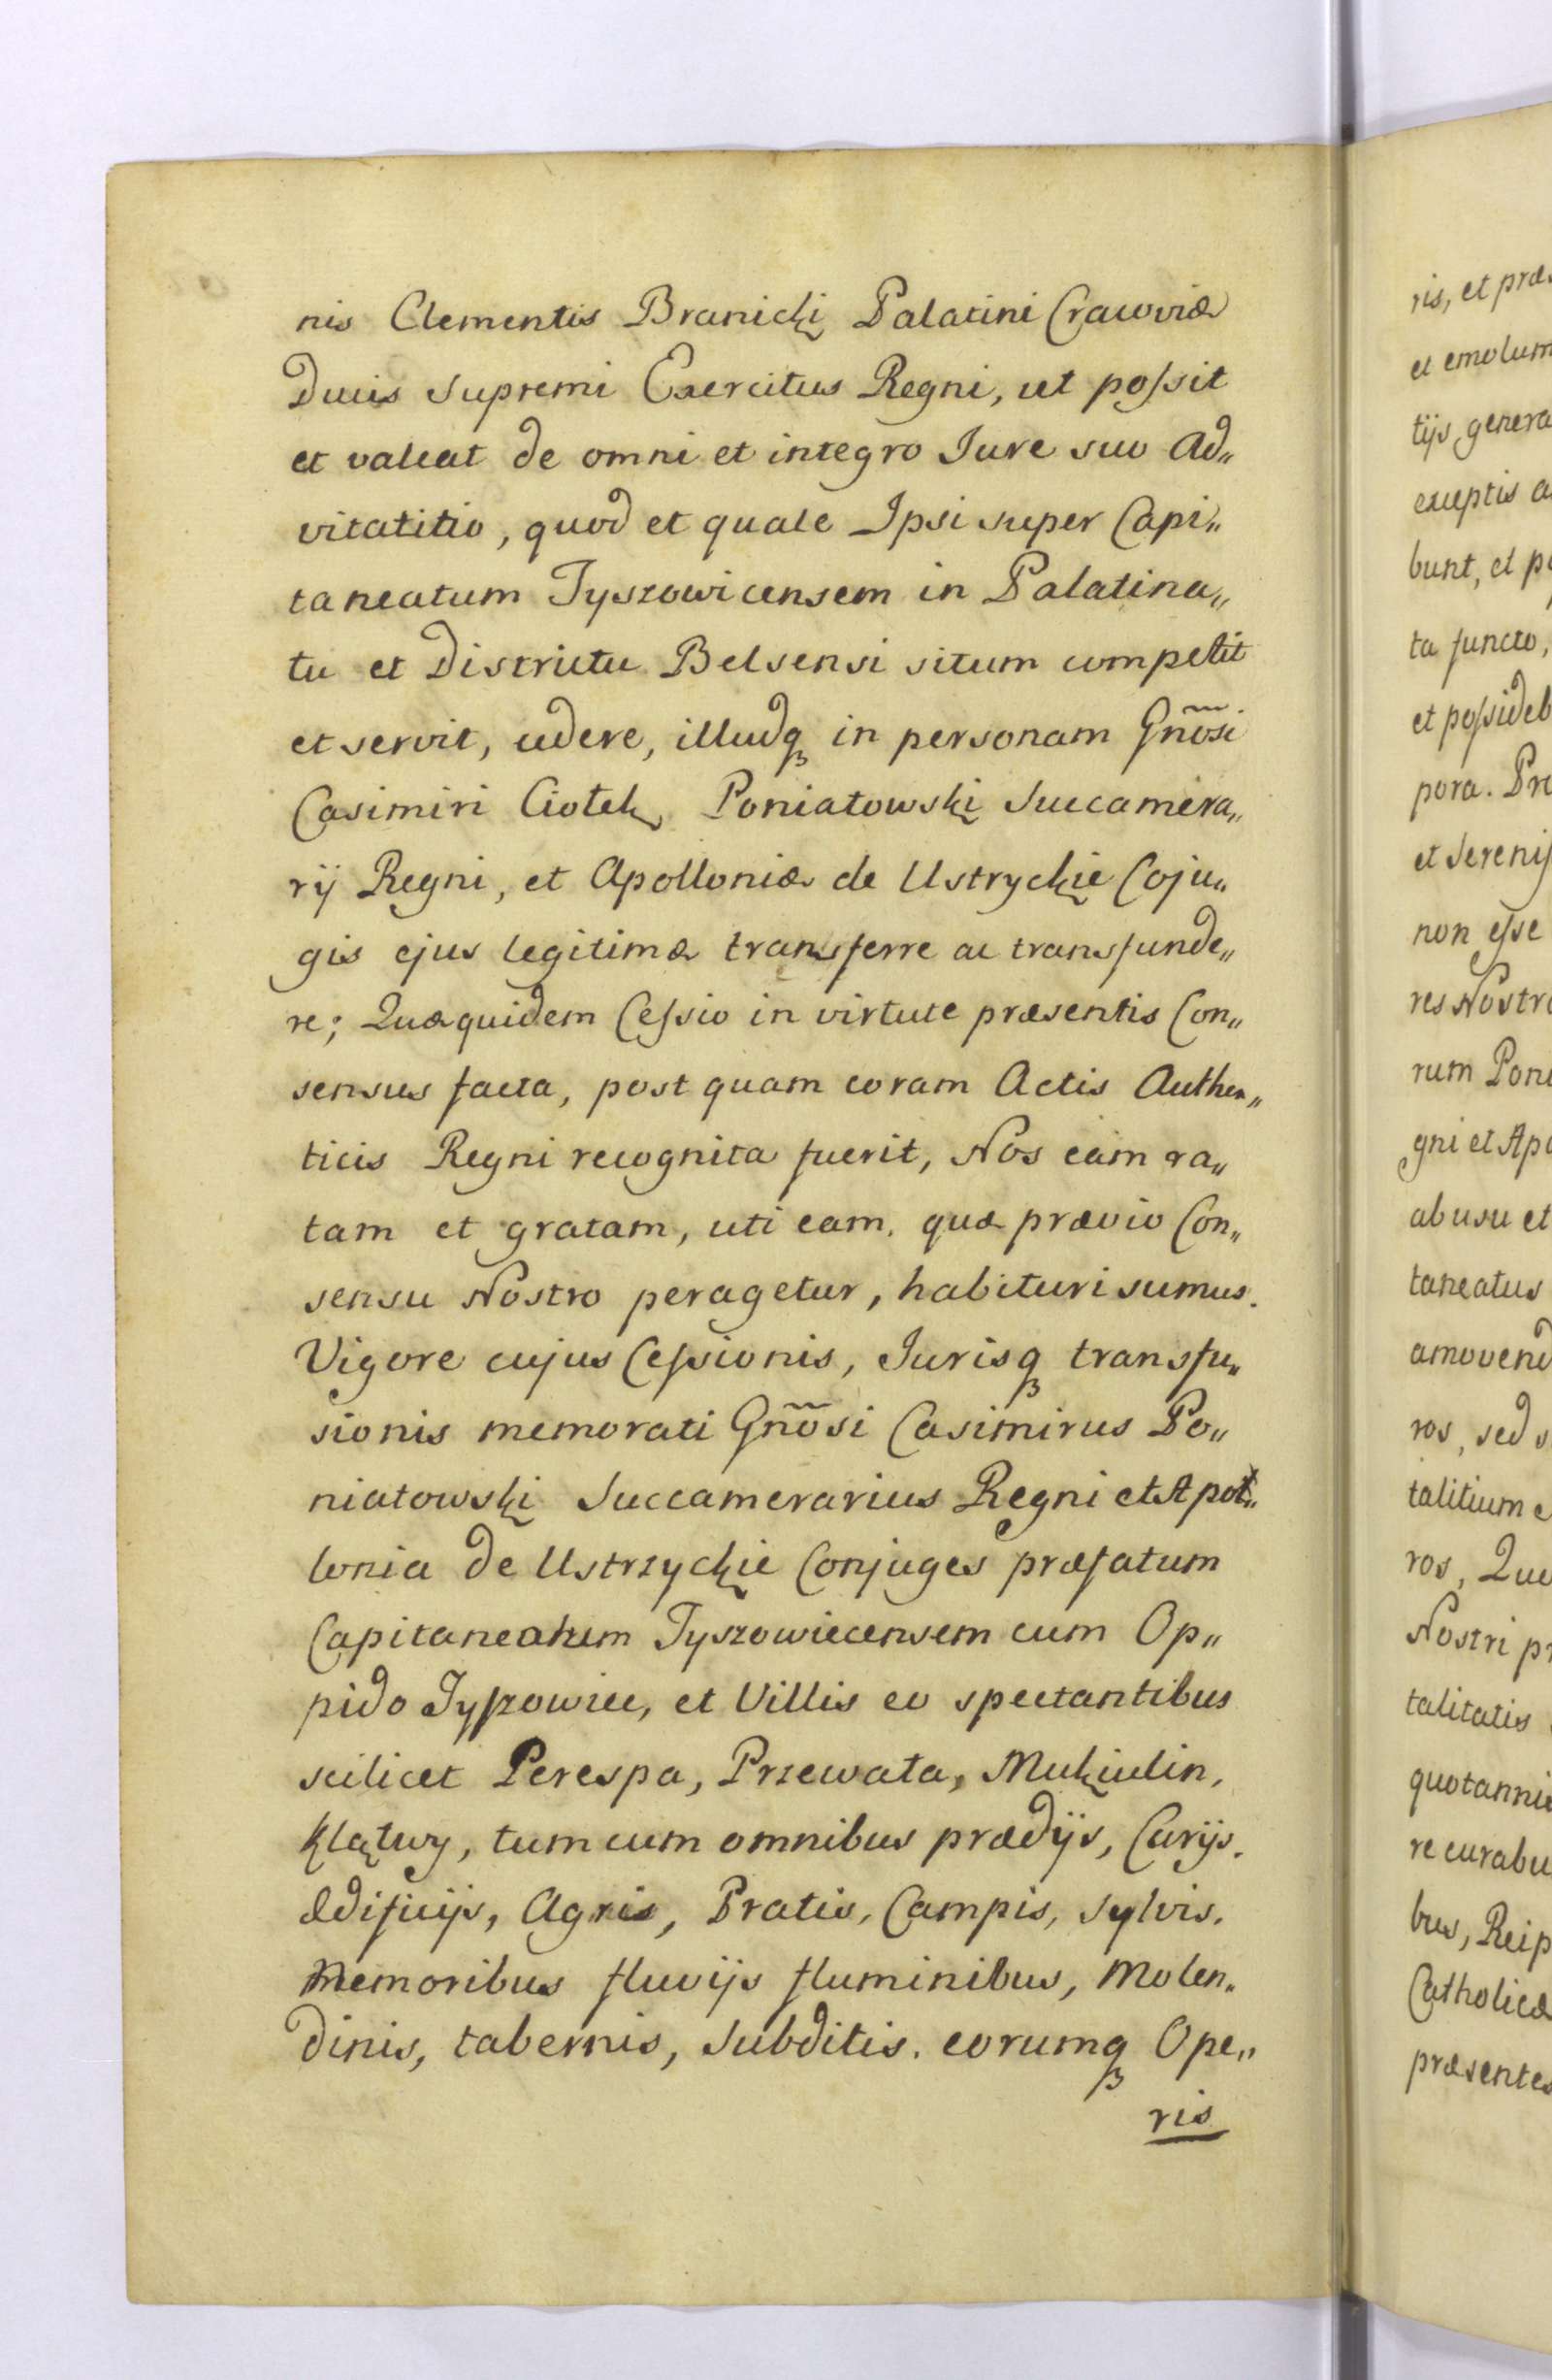 nis Clementis Branicki Palatini Cracoviæ
Ducis Supremi Exercitus Regni, ut poſsit
et valeat de omni et integro Jure suo Ad„
vitatitio, quod et quale Ipsi super Capi„
taneatum Tyszowicensem in Palatina„
tu et Districtu Belsensi situm competit
et servit, cedere, illudq in personam Gñosi
Casimiri Ciołek Poniatowski Succamera„
rij Regni, et Apolloniæ de Ustryckie Coju„
gis ejus legitimæ transferre ac transfunde„
re; Quæquidem Ceſsio in virtute præsentis Con„
sensus facta, post quam coram Actis Authen„
ticis Regni recognita fuerit, Nos eam ra„
tam et gratam, uti eam. quæ prævio Con„
sensu Nostro peragetur, habituri sumus.
Vigore cujus Ceſsionis, Jurisq transfu„
sionis memorati Gñosi Casimirus Po„
niatowski Succamerarius Regni et Apol„
lonia de Ustrzyckie Conjuges præfatum
Capitaneatum Tyszowiecensem cum Op„
pido Tyſzowiec, et Villis eo spectantibus
scilicet Perespa, Przewała, Mukiulin,
Klątwy, tum cum omnibus prædijs, Curijs.
Ædificijs, Agris, Pratis, Campis, Sylvis.
Memoribus fluvijs fluminibus, Molen„
dinis, tabernis, Subditis. eorumq Ope„
ris
ris, et præ
et emolum
tijs genera
exceptis a
bunt, et p
ta functo,
et poſsideb
pora. Pr
et Sereniſ
non eſse
res Nostr
rum Poni
gni et Ap
ab usu et
taneatus
amovend
ros, sed s
talitium e
ros, Quo
Nostri pr
talitatis
quotannis
re curabu
bus, Reip
Catholicæ
præsentes